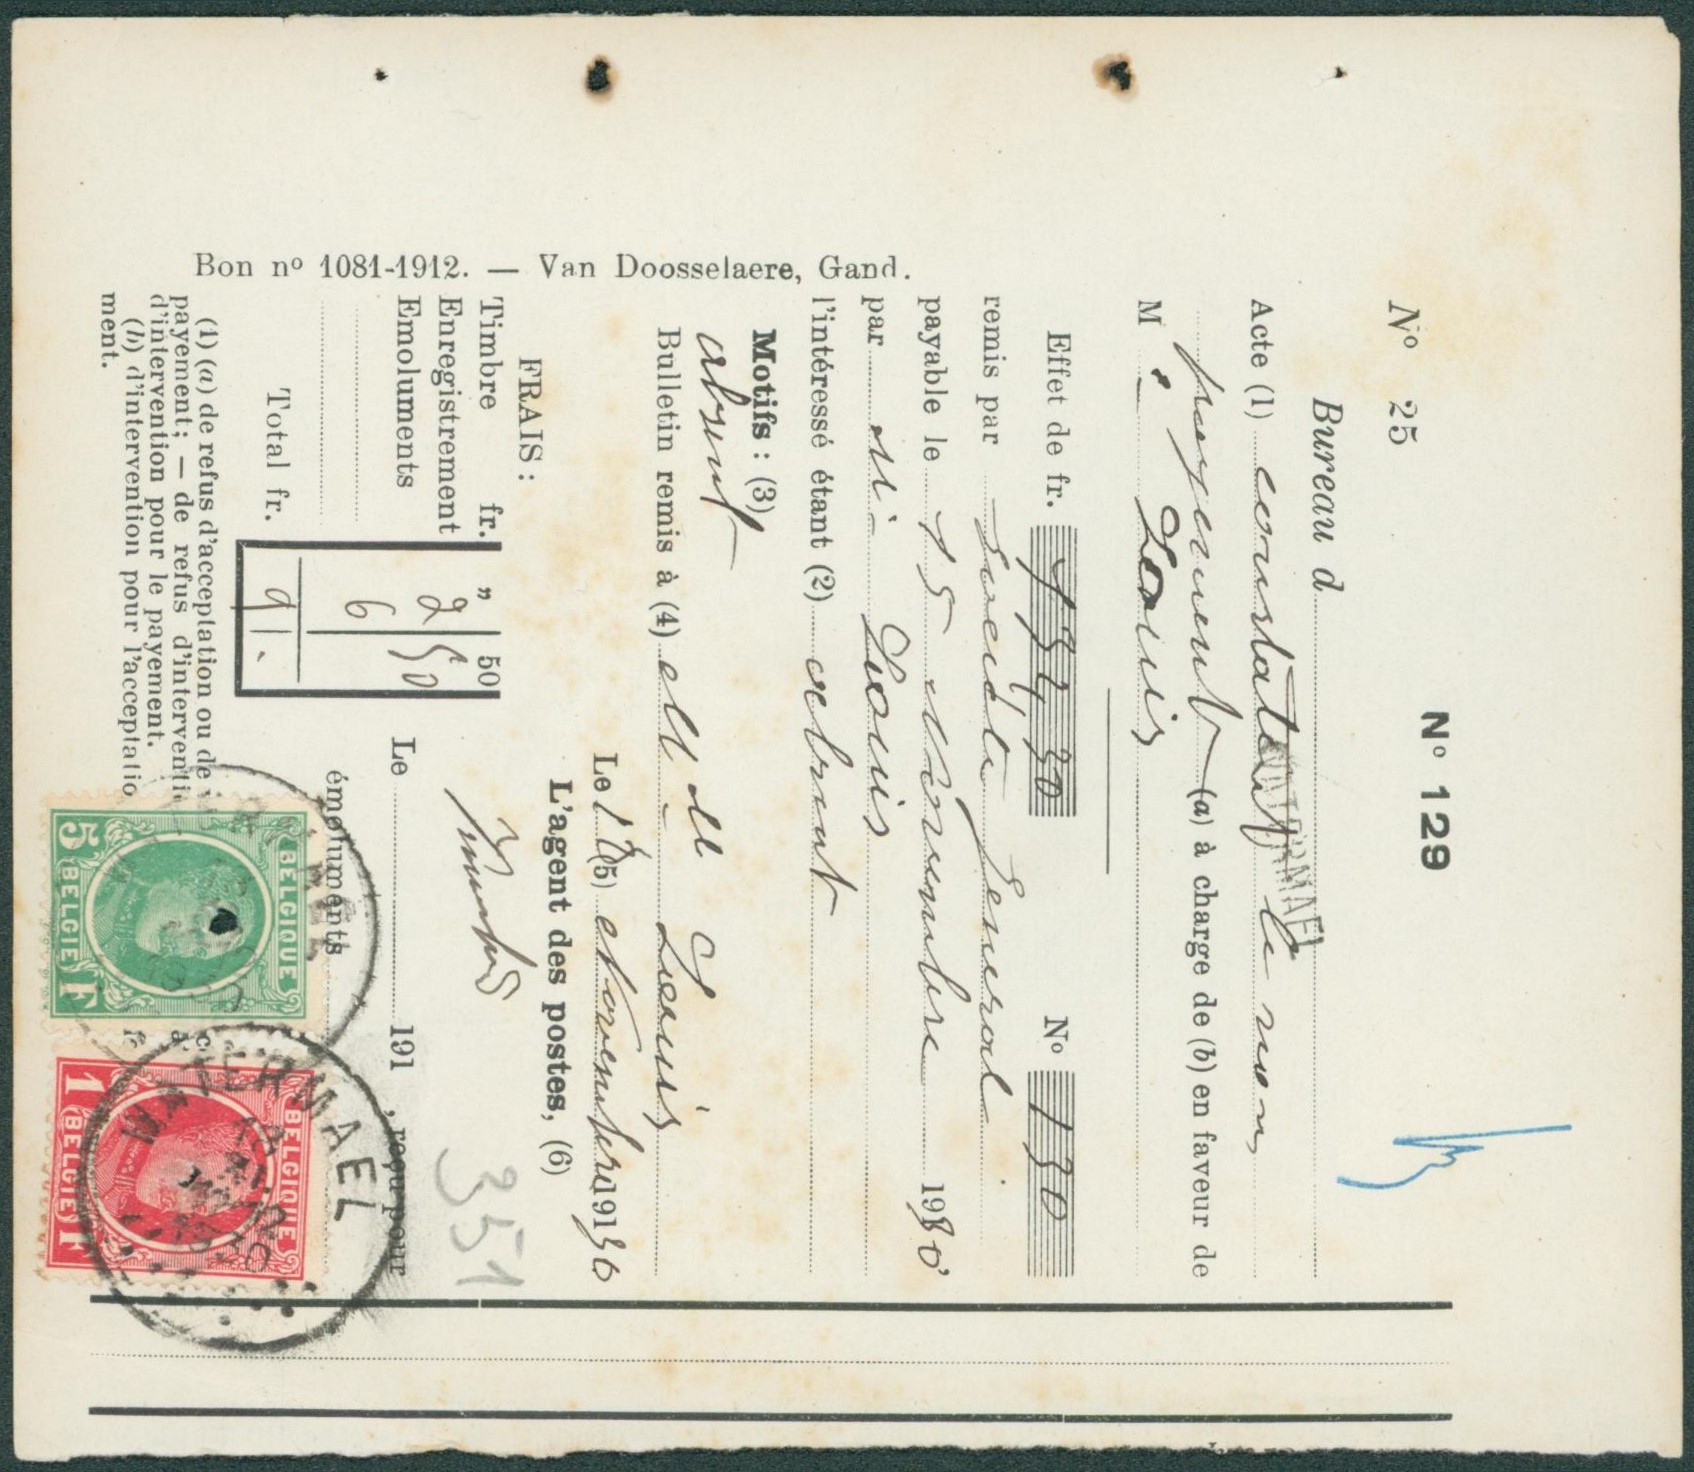 Nº 129
Nº 25
Bureau d WATERMAEL
Acte (1) constatant le non
payement (a) à charge de (b) en faveur de
M. Louis
Effet de fr. 154,30 Nº 130
remis par Société General
payable le 15 1930
par Louis
l'intéressé étant (2) absent
Motifs : (3)
absent
Bulletin remis à (4) Louis
Le (5) 1930
L'agent des postes, (6)
FRAIS :
Timbre fr. „ 50
Enregistrement 2 50
Emoluments 6
Total fr. 9.
351
Le 191 , reçu pour
émoluments
(1) (a) de refus d'acceptation ou de
payement; — de refus d'interventi
d'intervention pour le payement.
(b) d'intervention pour l'acceptatio
ment.
Bon nº 1081-1912. — Van Doosselaere, Gand.
BELGIQUE
5 BELGIE F
BELGIQUE
1 BELGIE F
WATERMAEL